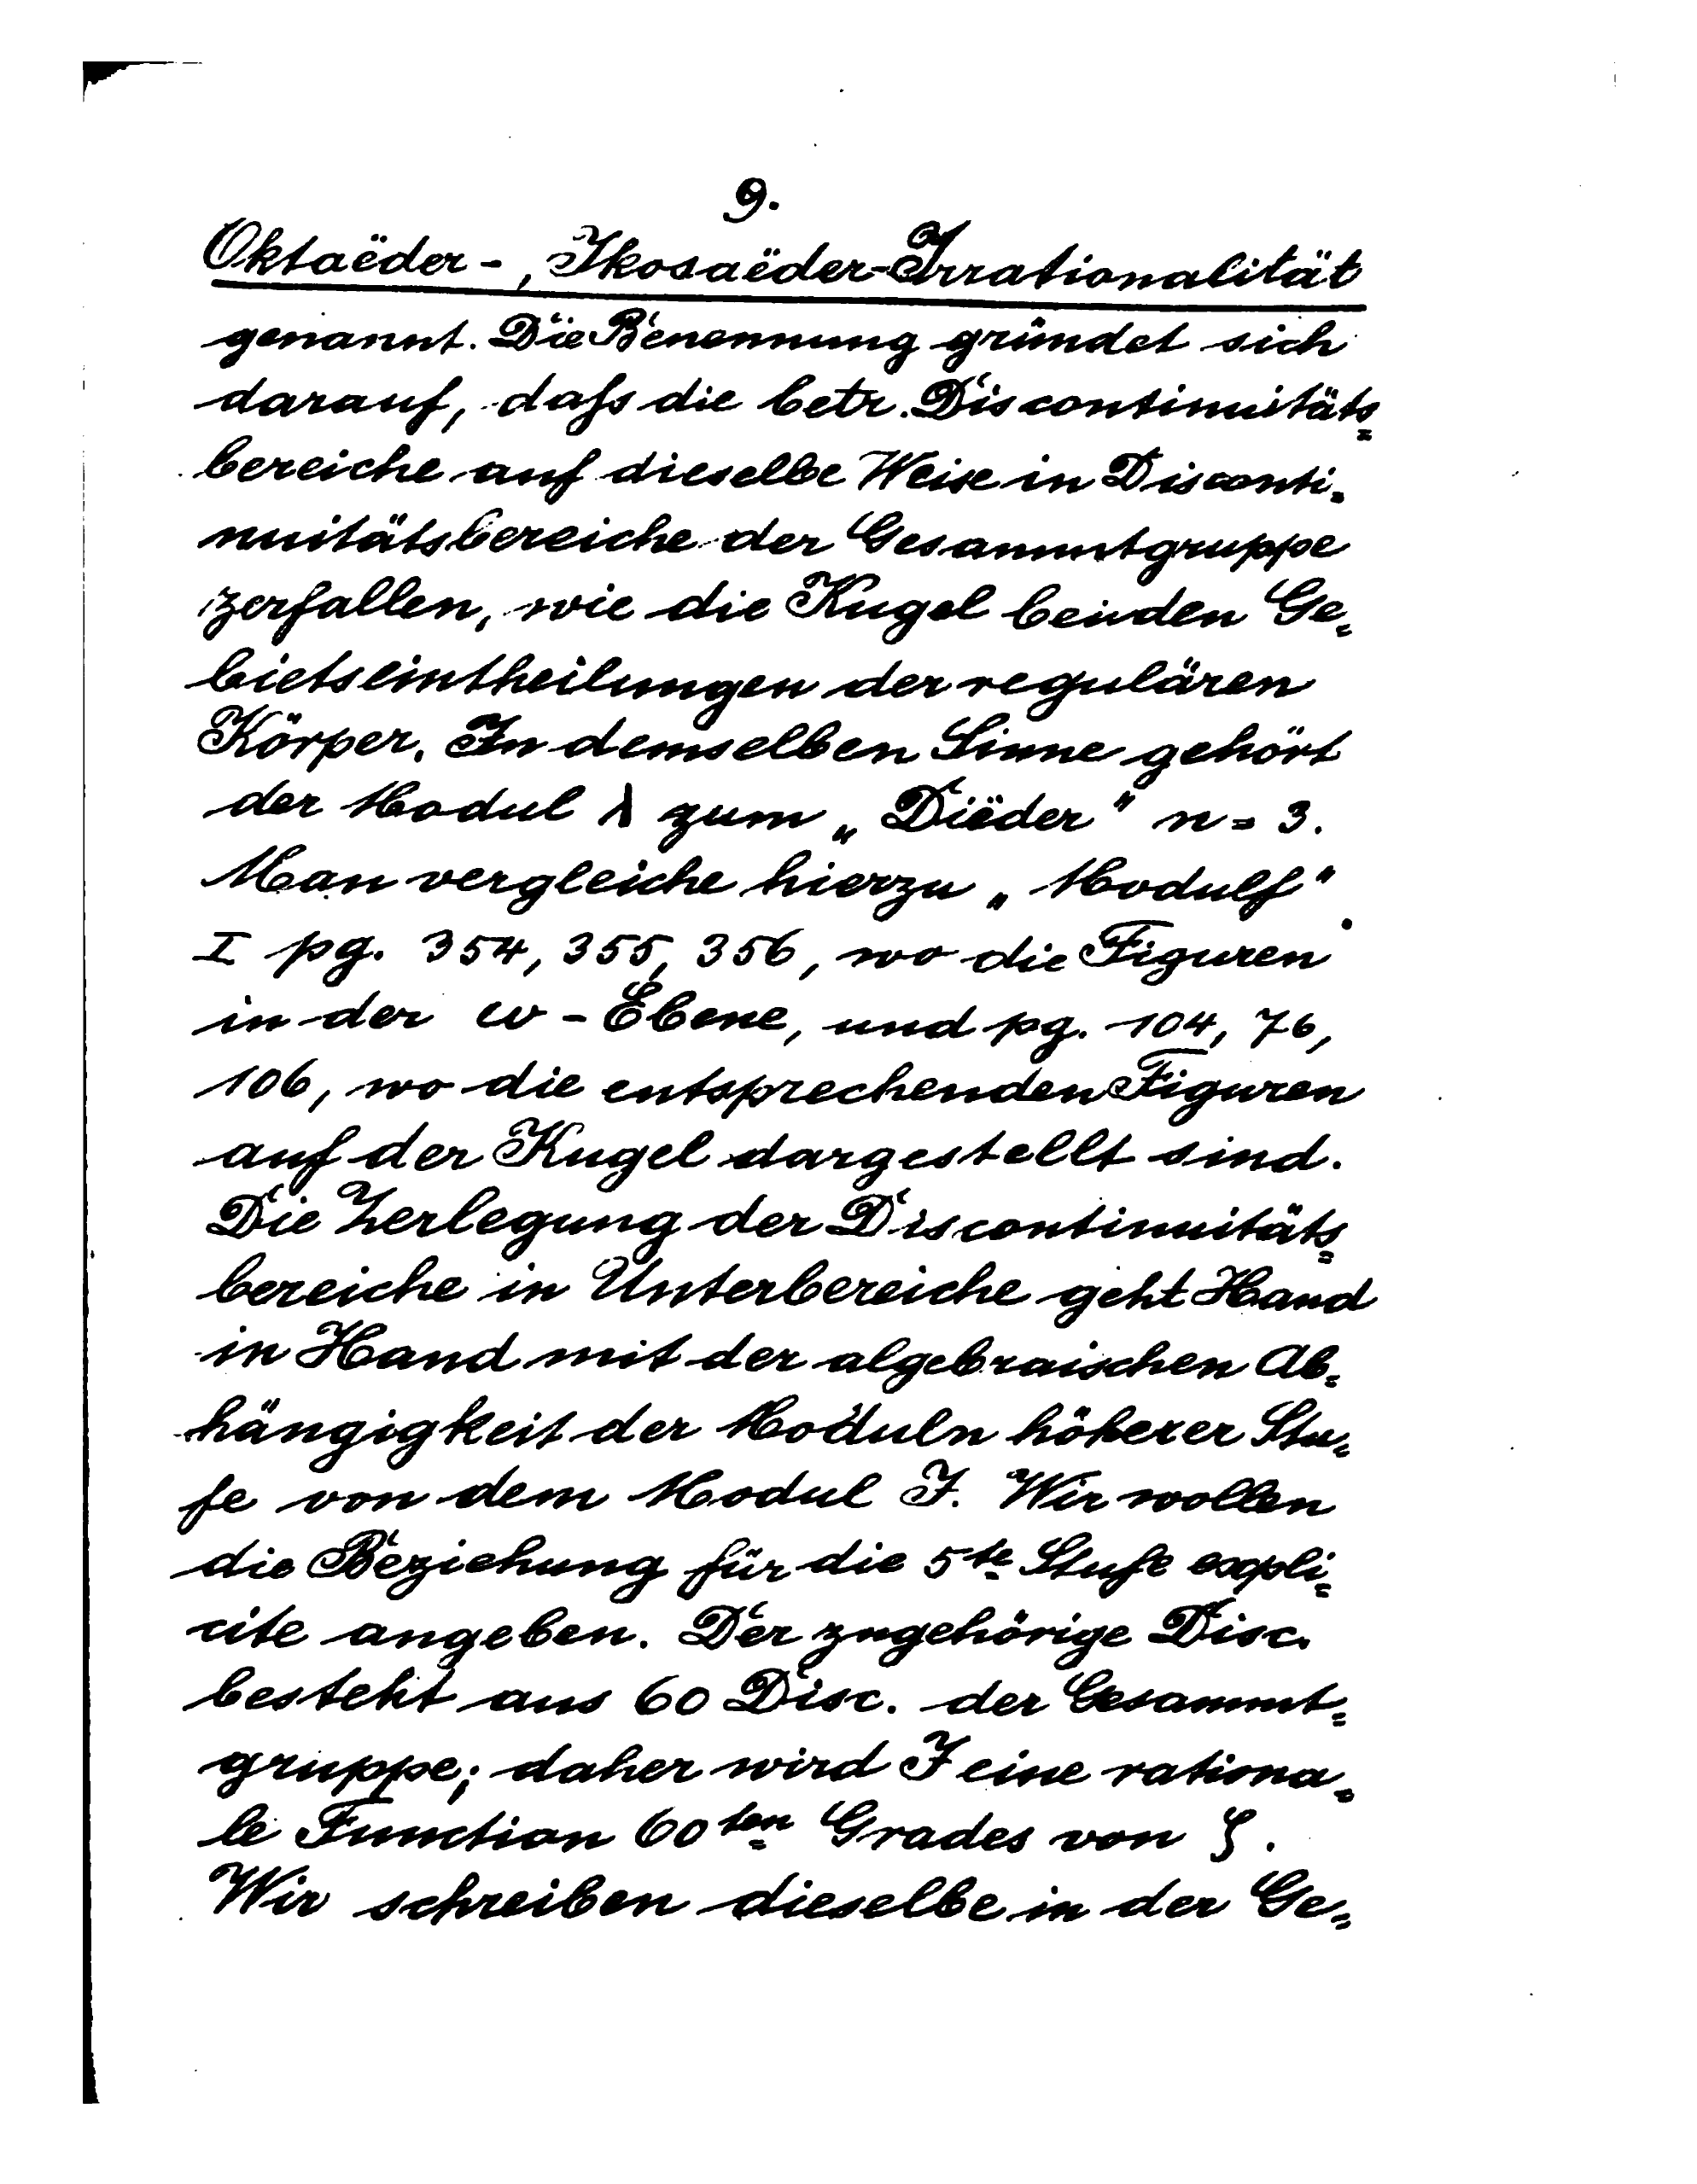 9.
Oktaëder-, Ikosaëder-Irrationalität
genannt. Die Benennung gründet sich
darauf, dass die betr. Discontinuitäts=
bereiche auf dieselbe Weise in Disconti=
nuitätsbereiche der Gesammtgruppe
zerfallen, wie die Kugel bei den Ge=
bietseintheilungen der regulären
Körper. In demselben Sinne gehört
der Modul λ zum „Diëder" n = 3.
Man vergleiche hierzu „Modulf"
I pg. 354, 355, 356, wo die Figuren
in der ω-Ebene, und pg. 104, 76,
106, wo die entsprechenden Figuren
auf der Kugel dargestellt sind.
Die Zerlegung der Discontinuitäts=
bereiche in Unterbereiche geht Hand
in Hand mit der algebraischen Ab=
hängigkeit der Moduln höherer Stu=
fe von dem Modul J. Wir wollen
die Beziehung für die 5te Stufe expli=
cite angeben. Der zugehörige Disc.
besteht aus 60 Disc. der Gesammt=
gruppe; daher wird J eine rationa=
le Function 60ten Grades von ζ.
Wir schreiben dieselbe in der Ge=